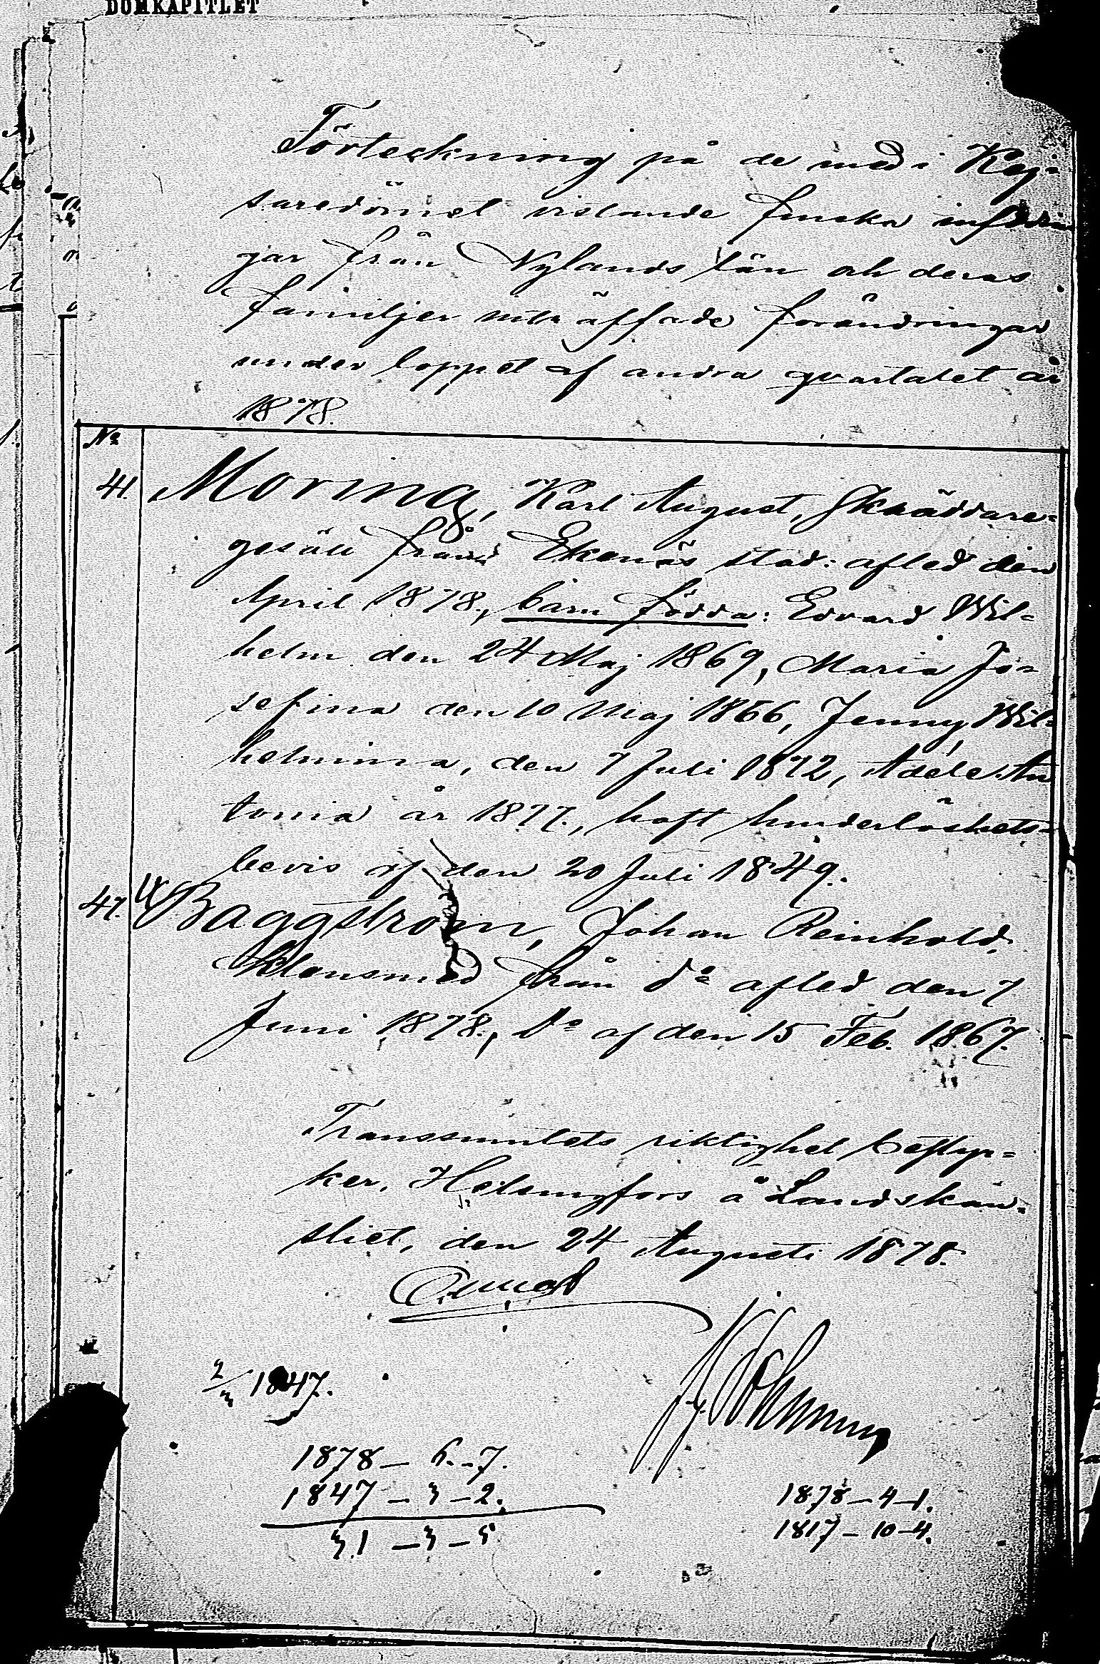 DOMKAPITLET
Förteckning på de med i Kej-
saredömet vistande finska infödin
gar från Nylands län och deras
familjer inträffade förändringar
under loppet af andra qvartalet år
1878.
No
41. Moring, Karl August, Skräddare-
gesäll från Ekenäs stad: afled den
April 1878., barn födda: Edvard Wil-
helm den 24 Maj 1869, Maria Jo-
sefina den 10 Maj 1866, Jenny Wil-
helmina, den 7 Juli 1872, Adéle An
tonia år 1877., haft hinderlöshets-
bevis af den 20 Juli 1849.
47. Baggström, Johan Reinhold,
Klensmed från do afled den 7
Juni 1878., Do af den 15 Feb. 1867.
Transsumtets riktighet bestyr-
ker, Helsingfors å Landskan-
sliet, den 24 Augusti 1878.
2/3 1847.
1878 – 6 – 7.
1847 – 3 – 2.
31 – 3 – 5
1878 – 4 – 1.
1817 – 10 – 4.